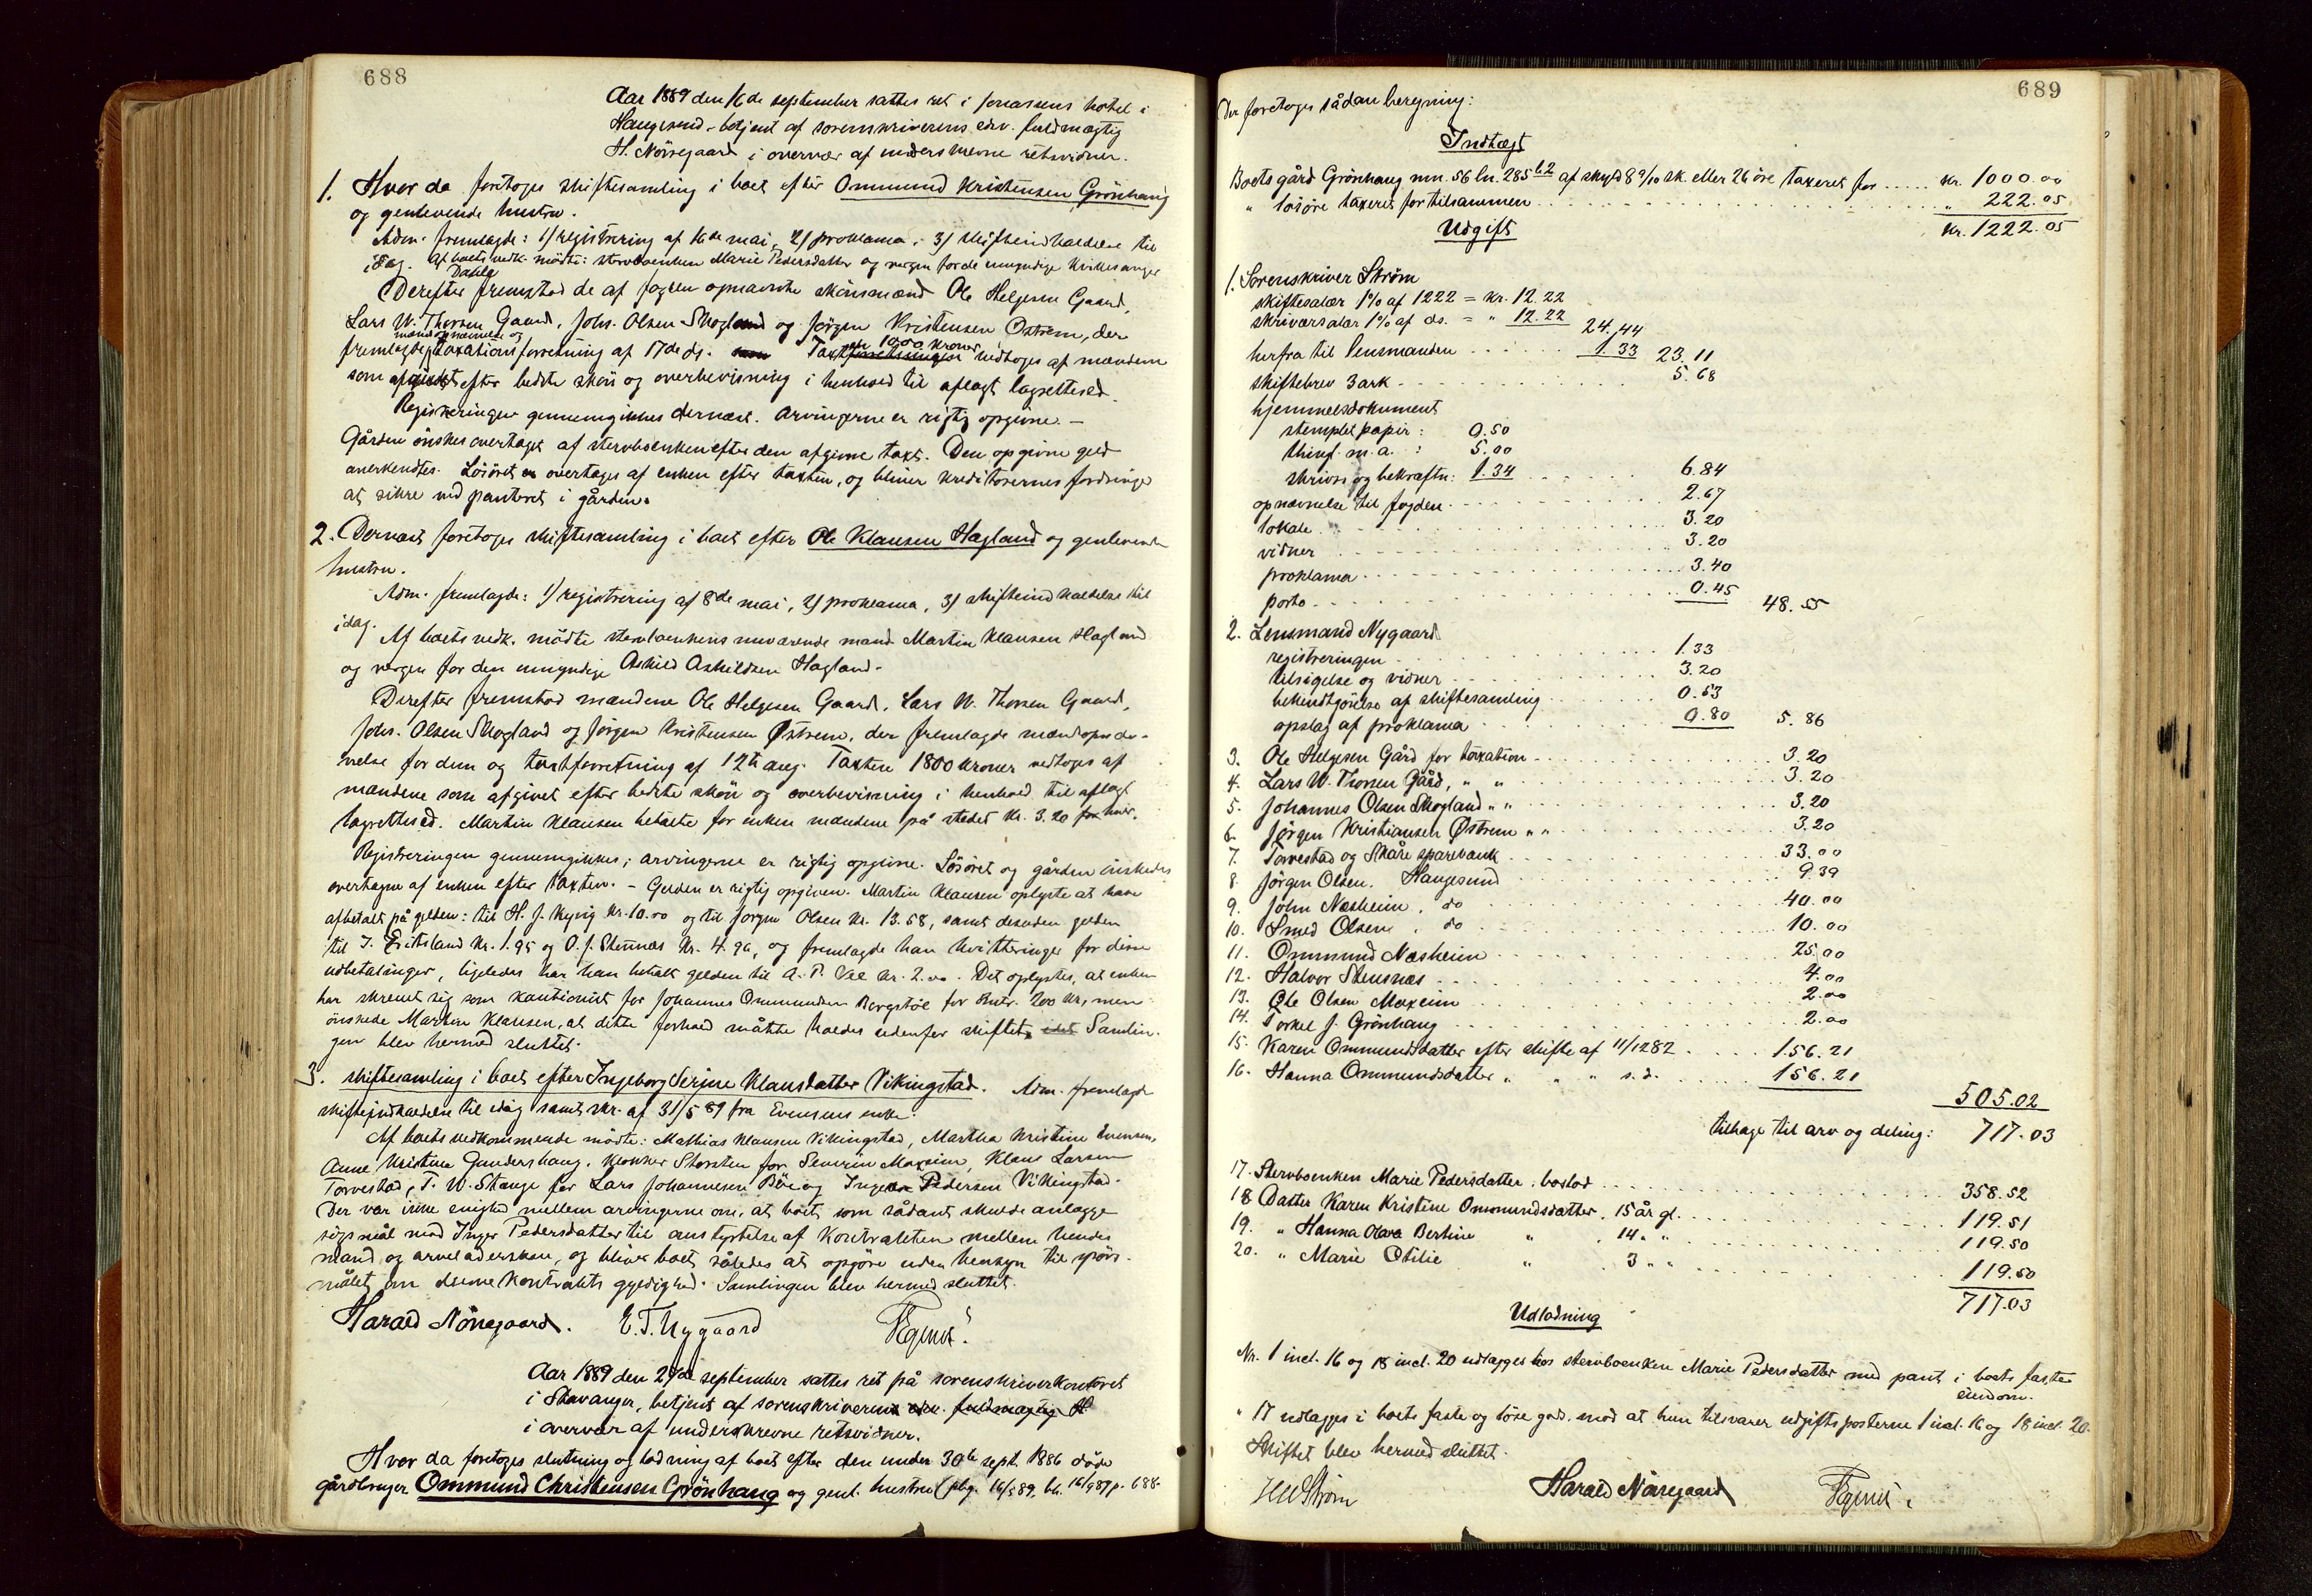 688
Aar 1889 den 16de september sattes ret i Jonassens hotel i
Haugesund – betjent af sorenskriverens edsv. fuldmægtig
H. Nörregaard i overvær af underskrevne retsvidner.
1. Hvor da foretoges skiftesamling i boet efter Ommund Kristensen Grönhaug
og genlevende hustru.
Adm. fremlagde: 1) registrering af 16de mai, 2) proklama, 3) skifteindkaldelse til
idag. Af boets vedk. mödte: stervboenken Marie Pedersdatter og vergen for de umyndige
Derefter fremstod de af fogden opnævnte skönsmænd Ole Helgesen Gaard,
Lars W. Thorsen Gaard, Johs. Olsen Skogland og Jörgen Kristensen Östrem, der
fremlagde mandsopnævnelse og taxationsforretning af 17de ds. Taxten 1000 kroner vedtoges af mændene
som afgivet efter bedste skön og overbevisning i henhold til aflagt lagretteséd.
Registreringen gennemgikkes dernæst. Arvingerne er rigtig opgivne. –
Gården önskes overtaget af stervboenken efter den afgivne taxt. Den opgivne geld
anerkendtes. Lösöret overtages af enken efter taxten, og bliver kreditorernes fordringer
at sikre ved panteret i gården.
2. Dernæst foretoges skiftesamling i boet efter Ole Klausen Hagland og genlevende
hustru.
Adm. fremlagde: 1) registrering af 8de mai, 2) proklama, 3) skifteindkaldelse til
idag.
Af boets vedk. mödte stervboenkens nuværende mand Martin Klausen Hagland
og vergen for den umyndige Askild Askildsen Hagland.
Derefter fremstod mændene Ole Helgesen Gaard, Lars W. Thorsen Gaard,
Johs. Olsen Skogland og Jörgen Kristensen Östrem, der fremlagde mandsopnæv-
nelse for dem og taxtforretning af 12te aug. Taxten 1800 kroner vedtoges af
mændene som afgivet efter bedste skön og overbevisning i henhold til aflagt
lagretteséd. Martin Klausen betalte for enken mændene på stedet kr. 3.20 for hver.
Registreringen gennemgikkes; arvingerne er rigtig opgivne. Lösöret og gården önskedes
overtagne af enken efter taxten. – Gelden er rigtig opgiven. Martin Klausen oplyste at have
afbetalt på gelden: til H. J. Kyvig kr. 10.00 og til Jörgen Olsen kr. 13.58, samt desuden gelden
til kr. 1.95 og O. J. Stensnes kr. 4.90, og fremlagde han kvitteringer for disse
udbetalinger, ligeledes har han betalt gelden til A. P. Vee kr. 2.00. Det oplystes, at enken
har skrevet sig som kautionist for Johannes Ommundsen Bergstöl for 200 kr, men
önskede Martin Klausen, at dette forhold måtte holdes udenfor skiftet. Samlin-
gen blev hermed sluttet.
3. Skiftesamling i boet efter Ingeborg Serine Klausdatter Vikingstad. Adm. fremlagde
skifteindkaldelse til idag samt skr. af 31/5 89 fra Evensens enke.
Af boets vedkommende mödte: Mathias Klausen Vikingstad, Martha Kristine Evensen,
Anne Kristine Gundershaug, Klokker Storsten for Severin Moxeim, Klaus Larsen
Torvestad, T. W. Stange for Lars Johannesen Böe og Inger Pedersen Vikingstad.
Der var ikke enighed mellem arvingerne om, at boet som sådant skulde anlægge
sögsmål mod Inger Pedersdatter til omstyrtelse af Kontrakten mellem hendes
mand og arveladersken, og bliver boet således at opgöre uden hensyn til spörs-
målet om denne kontrakts gyldighed. Samlingen blev hermed sluttet.
Harald Nörregaard. E. T. Nygaard
Aar 1889 den 27de september sattes ret på sorenskriverkontoret
i Stavanger, betjent af sorenskriveren edsv. fuldmægtig H.
i overvær af underskrevne retsvidner.
Hvor da foretoges slutning og lodning af boet efter den under 30te sept. 1886 döde
gårdbruger Ommund Christensen Grönhaug og genl. hustru (pbg. 16/5 89, bh. 16/9 89 p. 688.
689
Der foretoges sådan beregning:
Indtægt
Boets gård Grönhaug mn. 56 ln. 285 b2 af skyld 8 9/10 sk. eller 26 öre taxeret for ..... kr. 1000.00
" lösöre taxeret for tilsammen " 222.05
kr. 1222.05
Udgift
1. Sorenskriver Ström
skiftesalær 1% af 1222 = kr. 12.22
skriversalær 1% af ds. = " 12.22 24.44
herfra til lensmanden 1.33 23.11
skiftebrev 3 ark 5.68
hjemmelsdokument
stemplet papir: 0.50
thinl. m.a. : 5.00
skrivn. og bekræftn: 1.34 6.84
opnævnelse til fogden 2.67
lokale 3.20
vidner 3.20
proklama 3.40
porto 0.45 48.55
2. Lensmand Nygaard
registreringen 1.33
tilsigelse og vidner 3.20
bekendtgörelse af skiftesamling 0.53
opslag af proklama 0.80 5.86
3. Ole Helgesen Gård for taxation 3.20
4. Lars W. Thorsen Gård, " " 3.20
5. Johannes Olsen Skogland " " 3.20
6. Jörgen Kristiansen Östrem " " 3.20
7. Torvestad og Skåre sparebank 33.00
8. Jörgen Olsen. Haugesund 9.39
9. John Næsheim, do 40.00
10. Smed Olsen, do 10.00
11. Ommund Næsheim 25.00
12. Halvor Stensnæs 4.00
13. Ole Olsen Moxeim 2.00
14. Torkel J. Grönhaug 2.00
15. Karen Ommundsdatter efter skifte af 11/12 82 156.21
16. Hanna Ommundsdatter " " " s.d. 156.21
505.02
tilbage til arv og deling: 717.03
17. Stervboenken Marie Pedersdatter, boslod 358.52
18 Datter Karen Kristine Ommundsdatter, 15 år gl. 119.51
19. " Hanna Olava Bertine " , 14 " " 119.50
20. " Marie Otilie " 3 " " 119.50
717.03
Udlodning
Nr. 1 incl. 16 og 18 incl. 20 udlægges hos stervboenken Marie Pedersdatter med pant i boets faste
eiendom.
" 17 udlægges i boets faste og löse gods mod at hun tilsvarer udgiftsposterne 1 incl. 16 og 18 incl. 20.
Skiftet blev hermed sluttet.
Ström Harald Nörregaard